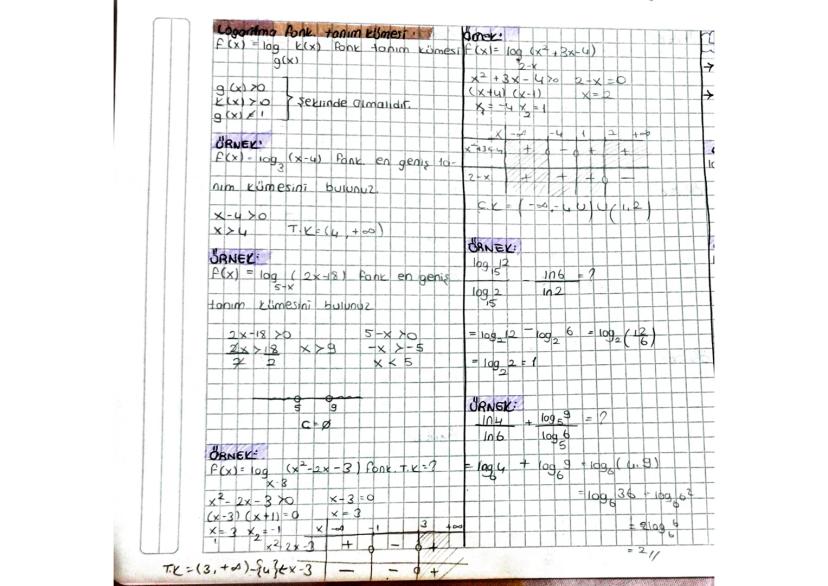 Logaritma fonk tanım kümesi:
f(x) = log k(x) fonk tanım kümesi
g(x)
g(x)>0
k(x)>0
g(x)≠1
şeklinde olmalıdır.
ÖRNEK:
f(x) = log₃ (x-4) fonk en geniş ta-
nım kümesini bulunuz.
x-4>0
x>4 T.K=(4, +∞)
ÖRNEK:
f(x) = log (2x-18) fonk en geniş
5-x
tanım kümesini bulunuz
2x-18>0 5-x>0
2x>18 x>9 -x>-5
2 2 x<5
5 9
C=∅
ÖRNEK:
f(x)=log (x²-2x-3) fonk. T.K=?
x-3
x²-2x-3>0 x-3=0
(x-3)(x+1)=0 x=3
x₁=3 x₂=-1
x -∞ -1 3 +∞
x²-2x-3 + - +
x-3 - - +
T.K=(3, +∞)-{4}
Örnek:
f(x)= log (x²+3x-4)
2-x
x²+3x-4>0 2-x=0
(x+4)(x-1) x=2
x₁=-4 x₂=1
x -∞ -4 1 2 +∞
x²+3x-4 + - + +
2-x + + + -
Ç.K=(-∞,-4)∪(1,2)
ÖRNEK:
log₁₅12 / log₁₅2 - ln6 / ln2 = ?
=log₂12 - log₂6 = log₂(12/6)
=log₂2=1
ÖRNEK:
ln4 / ln6 + log₅9 / log₅6 = ?
=log₆4 + log₆9 = log₆(4.9)
=log₆36 = log₆6²
=2log₆6
=2//